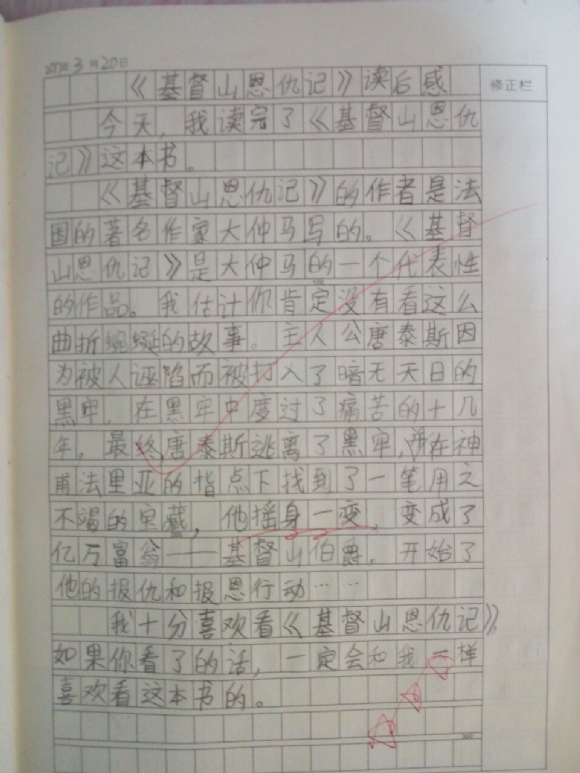 3月20日
《基督山恩仇记》读后感
修正栏
今天，我读完了《基督山恩仇
记》这本书。
《基督山恩仇记》的作者是法
国的著名作家大仲马写的。《基督
山恩仇记》是大仲马的一个代表性
的作品。我估计你肯定没有看这么
曲折蜿蜒的故事。主人公唐泰斯因
为被人诬陷而被打入了暗无天日的
黑牢，在黑牢中度过了痛苦的十几
年，最终，唐泰斯逃离了黑牢，在神
甫法里亚的指点下找到了一笔用之
不竭的宝藏，他摇身一变，变成了
亿万富翁——基督山伯爵，开始了
他的报仇和报恩行动……
我十分喜欢看《基督山恩仇记》
如果你看了的话，一定会和我一样
喜欢看这本书的。